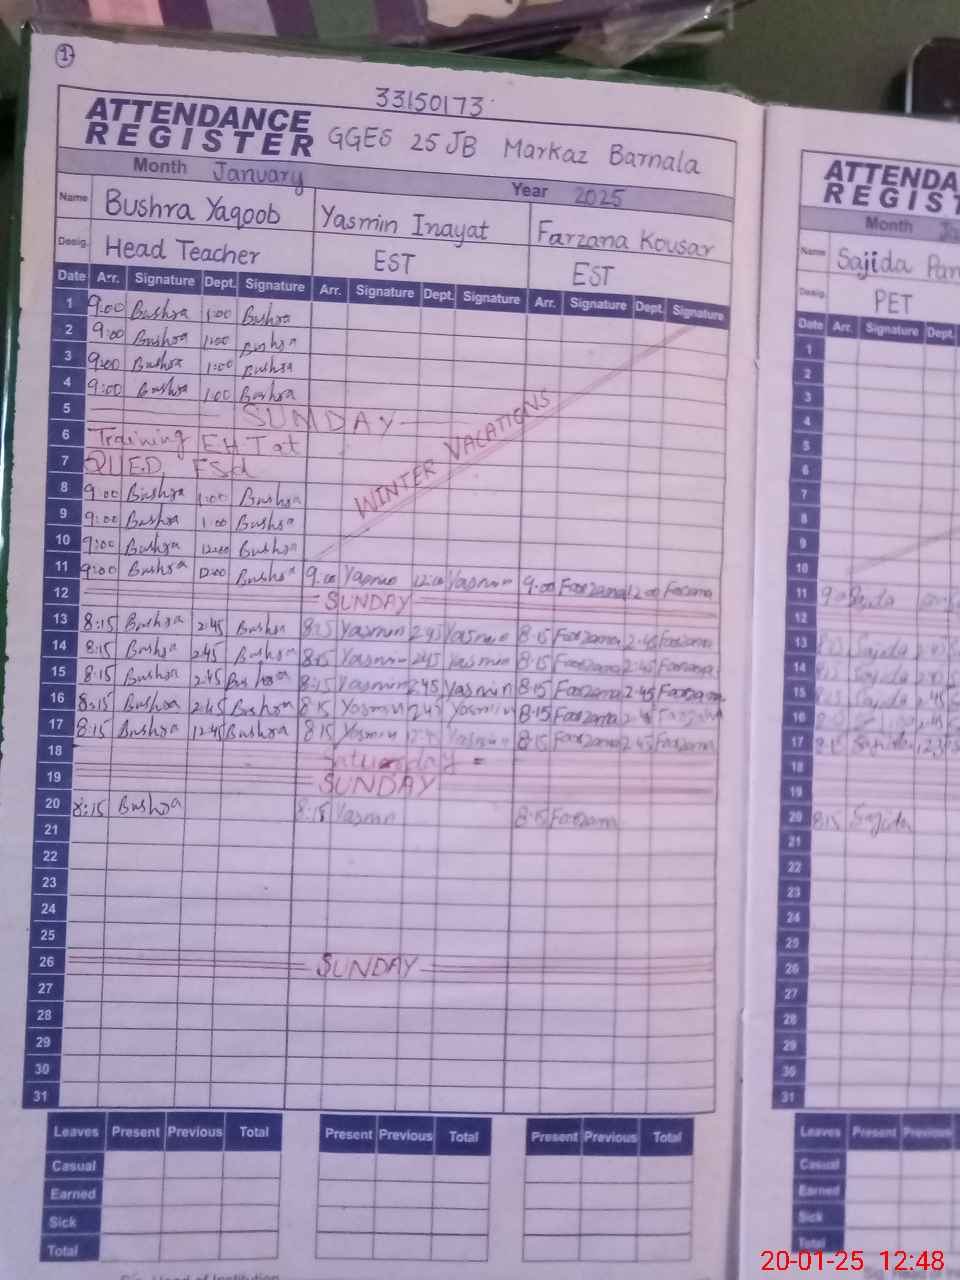 1
33150173
ATTENDANCE REGISTER GGES 25 JB Markaz Barnala
Month January Year 2025
Name Bushra Yaqoob Yasmin Inayat Farzana Kousar
Desig. Head Teacher EST EST
Date Arr. Signature Dept. Signature Arr. Signature Dept. Signature Arr. Signature Dept. Signature
1 9:00 Bushra 1:00 Bushra
2 9:00 Bushra 1:00 Bushra
3 9:00 Bushra 1:00 Bushra
4 9:00 Bushra 1:00 Bushra
5 SUNDAY
6 Training EH Tat
7 QUED FSd
WINTER VACATIONS
8 9:00 Bushra 1:00 Bushra
9 9:00 Bushra 1:00 Bushra
10 9:00 Bushra 12:00 Bushra
11 9:00 Bushra 12:00 Bushra 9:00 Yasmin 12:00 Yasmin 9:00 Farzana 12:00 Farzana
12 SUNDAY
13 8:15 Bushra 2:45 Bushra 8:15 Yasmin 2:45 Yasmin 8:15 Farzana 2:45 Farzana
14 8:15 Bushra 2:45 Bushra 8:15 Yasmin 2:45 Yasmin 8:15 Farzana 2:45 Farzana
15 8:15 Bushra 2:45 Bushra 8:15 Yasmin 2:45 Yasmin 8:15 Farzana 2:45 Farzana
16 8:15 Bushra 2:45 Bushra 8:15 Yasmin 2:45 Yasmin 8:15 Farzana 2:45 Farzana
17 8:15 Bushra 12:45 Bushra 8:15 Yasmin Yasmin 8:15 Farzana 2:45 Farzana
18 Saturday
19 SUNDAY
20 8:15 Bushra 8:15 Yasmin 8:15 Farzana
21
22
23
24
25
26 SUNDAY
27
28
29
30
31
Leaves Present Previous Total Present Previous Total Present Previous Total
Casual
Earned
Sick
Total
ATTENDA
REGIST
Month
Name Sajida
Desig. PET
Date Arr. Signature Dept.
1
2
3
4
5
6
7
8
9
10
11 Sajida
12
13 Sajida
14 Sajida
15 Sajida 2:45
16
17 8:15 Sajida
18
19
20 8:15 Sajida
21
22
23
24
25
26
27
28
29
30
31
Leaves Present Previous
Casual
Earned
Sick
Total
20-01-25 12:48